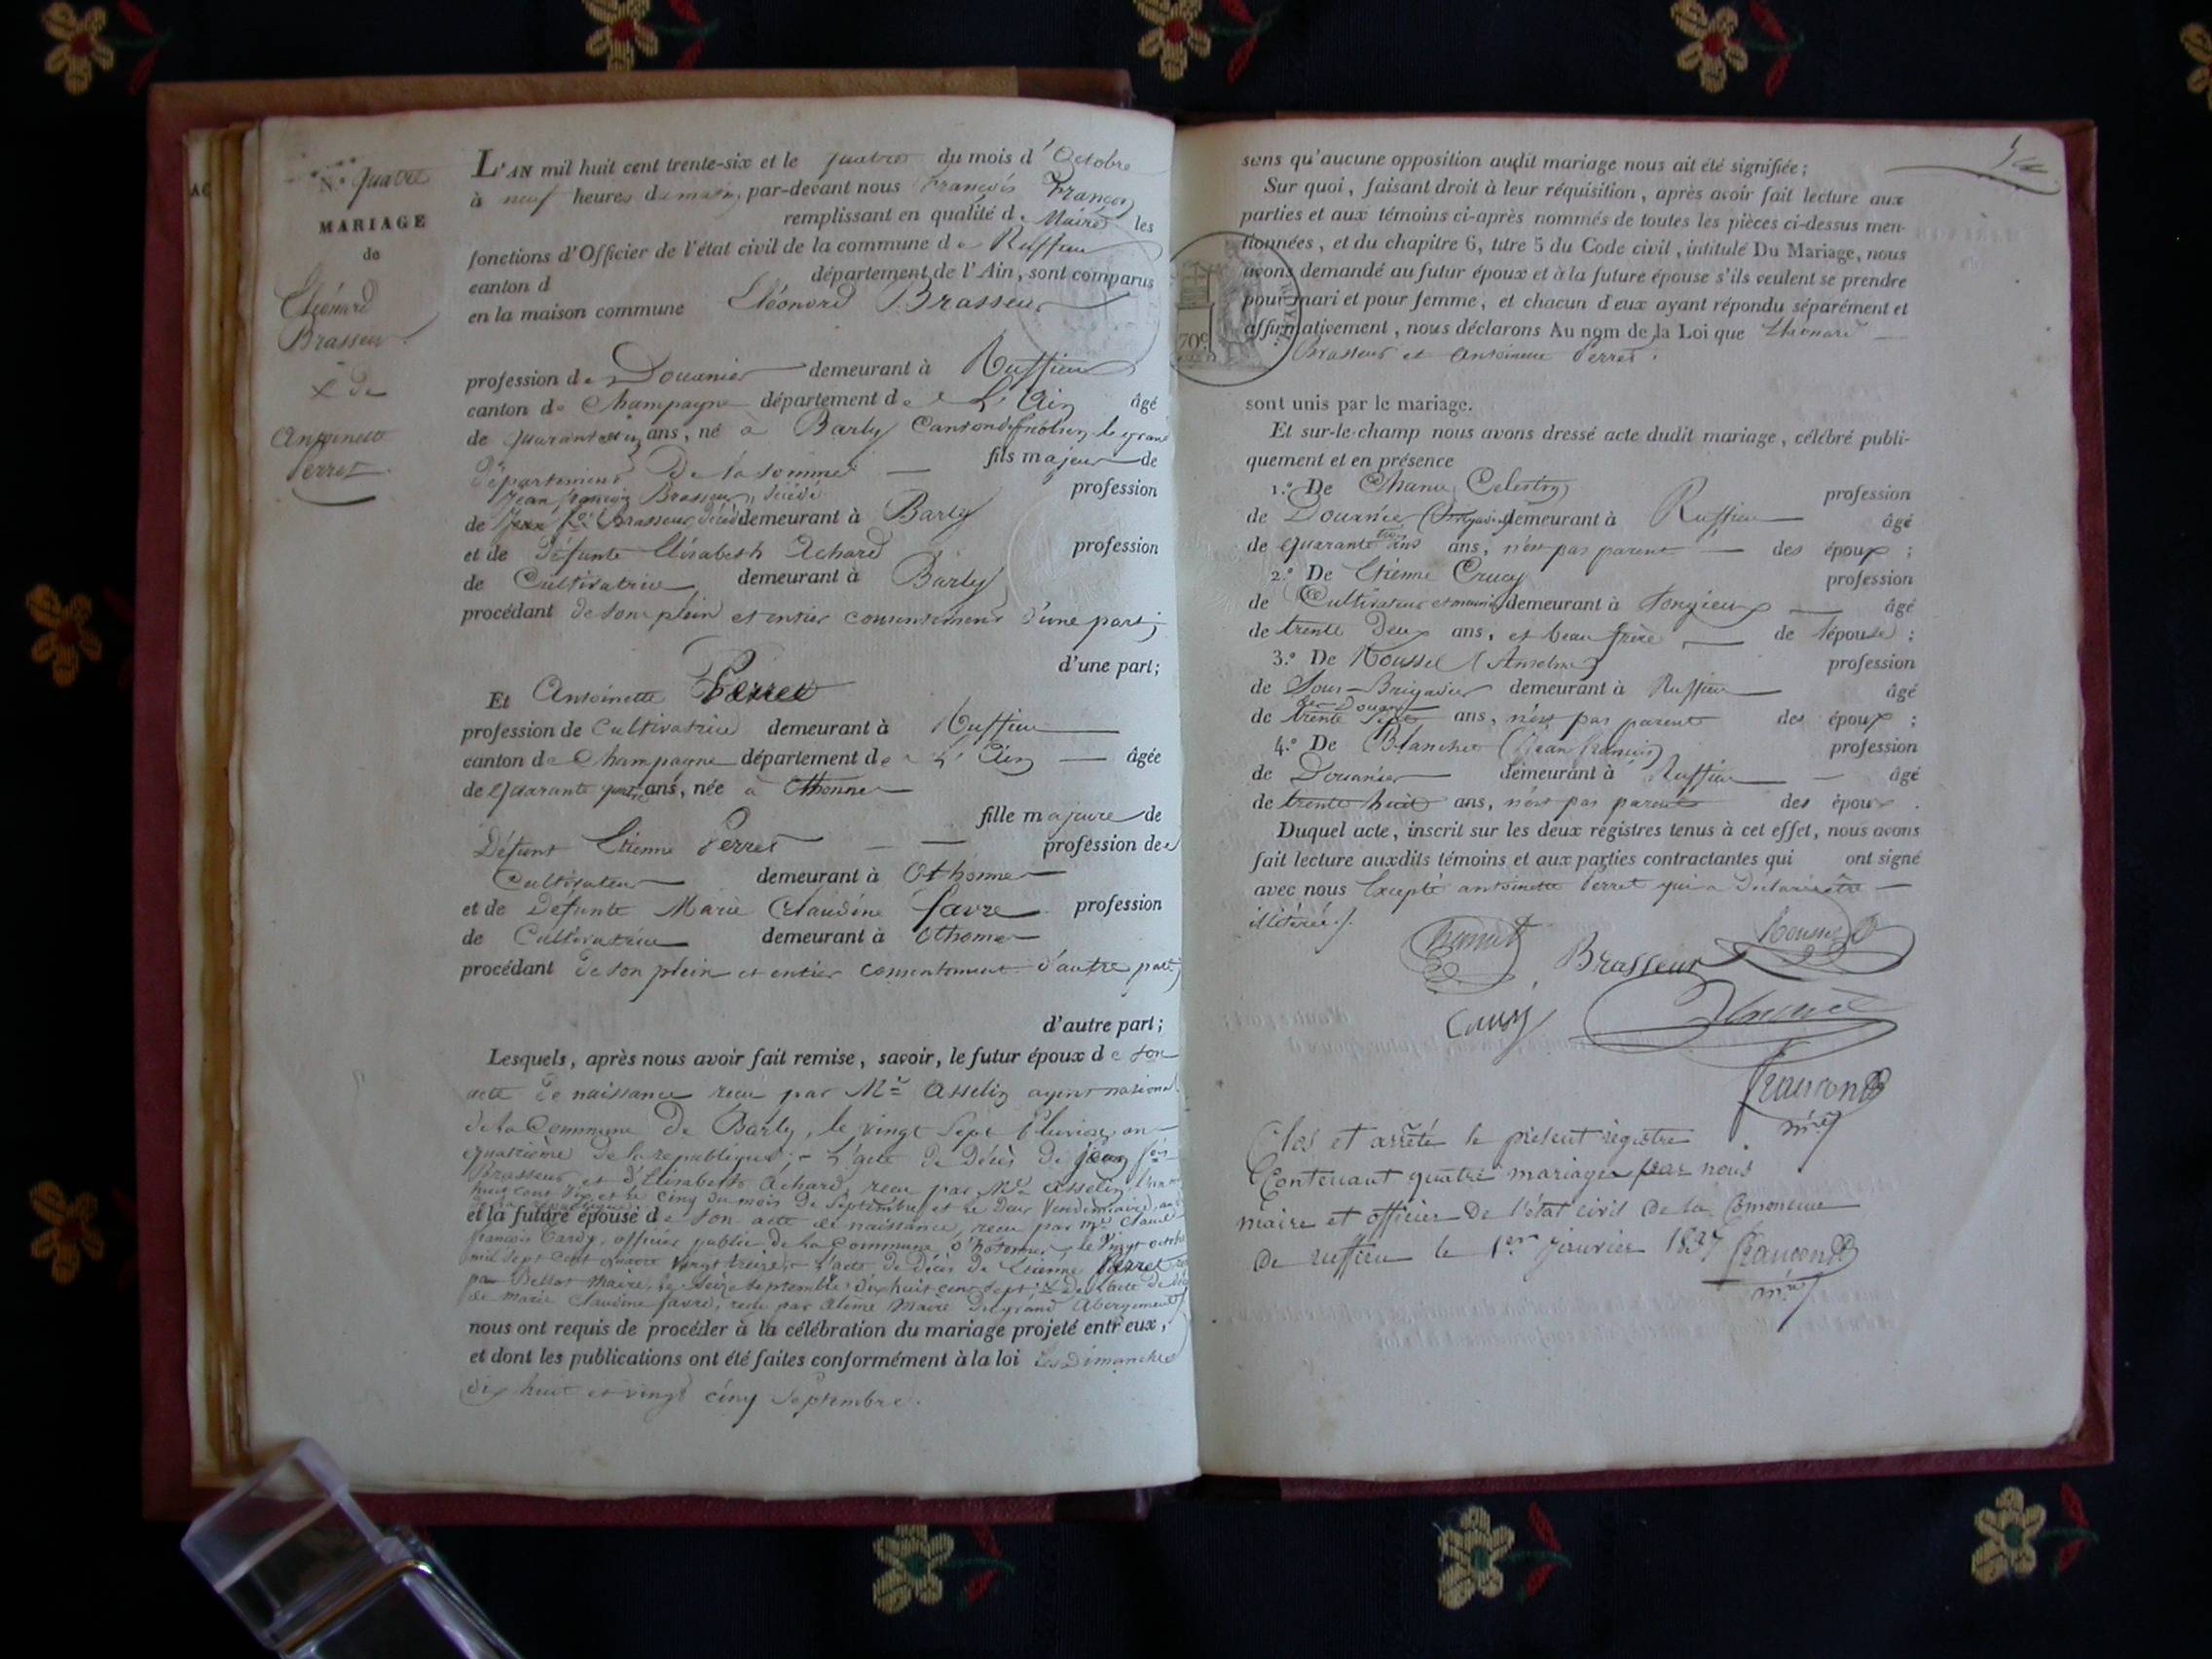 N.º quatre
MARIAGE
de
Léonard
Brasseur
& de
Antoinette
Perret
L'AN mil huit cent trente-six et le quatre du mois d'Octobre
à neuf heures du matin, par-devant nous François
remplissant en qualité de Maire les
fonctions d'Officier de l'état civil de la commune de Ruffieu
canton d département de l'Ain, sont comparus
en la maison commune Léonard Brasseur
profession de Douanier demeurant à Ruffieu
canton de Champagne département de L'Ain âgé
de quarante ans, né à Barly Canton le grand
département De la Somme fils majeur de
Jean françois Brasseur, décédé profession
de Jean Brasseur décédé demeurant à Barly
et de défunte Elisabeth Achard profession
de Cultivatrice demeurant à Barly
procédant de son plein et entier consentement d'une part;
d'une part;
Et Antoinette Perret
profession de Cultivatrice demeurant à Ruffieu
canton de Champagne département de L'Ain âgée
de quarante ans, née à
fille majeure de
Défunt Etienne Perret profession de
Cultivateur demeurant à
et de Défunte Marie Claudine favre profession
de Cultivatrice demeurant à
procédant de son plein et entier consentement d'autre part;
d'autre part;
Lesquels, après nous avoir fait remise, savoir, le futur époux de son
acte de naissance recu par Mr Asselin agent national
de la Commune de Barly, le vingt sept Pluviose an
quatrième de la republique; L'acte de décès de jean
Brasseur et d'Elisabeth achard, recu par Mr asselin
huit cent dix et le cinq du mois de Septembre et le deux Vendemiaire, an
et la future épouse de son acte de naissance, recu par mr claude
françois Tardy, officier public de la commune d'hotonnes, le vingt
mil sept cent quatre vingt treize, L'acte de décès de Etienne Perret
par Bellot Maire, le Seize Septembre dix huit cent sept; & de L'acte de
de marie Claudine favre, recu par Maire du grand Abergement
nous ont requis de procéder à la célébration du mariage projeté entr'eux,
et dont les publications ont été faites conformément à la loi Les Dimanches
dix huit et vingt cinq Septembre.
sans qu'aucune opposition audit mariage nous ait été signifiée;
Sur quoi, faisant droit à leur réquisition, après avoir fait lecture aux
parties et aux témoins ci-après nommés de toutes les pièces ci-dessus men-
tionnées, et du chapitre 6, titre 5 du Code civil, intitulé Du Mariage, nous
avons demandé au futur époux et à la future épouse s'ils veulent se prendre
pour mari et pour femme, et chacun d'eux ayant répondu séparément et
affirmativement, nous déclarons Au nom de la Loi que Léonard
Brasseur et Antoinette Perret.
70c
sont unis par le mariage.
Et sur-le-champ nous avons dressé acte dudit mariage, célébré publi-
quement et en présence
1.º De Celestin profession
de demeurant à Ruffieu âgé
de quarante trois ans, n'est pas parent des époux;
2.º De Etienne Crucy profession
de Cultivateur demeurant à Songieu âgé
de trente deux ans, et beau frère de l'épouse;
3.º De Roussel (Anselme) profession
de Sous-Brigadier demeurant à Ruffieu âgé
des Douanes
de trente sept ans, n'est pas parent des époux;
4.º De Blanchet (jean françois) profession
de Douanier demeurant à Ruffieu âgé
de trente huit ans, n'est pas parent des époux.
Duquel acte, inscrit sur les deux registres tenus à cet effet, nous avons
fait lecture auxdits témoins et aux parties contractantes qui ont signé
avec nous Excepté antoinette Perret qui a declaré être
illitérée.
Brasseur
Clos et arrêté le présent registre
Contenant quatre mariages par nous
maire et officier De l'état civil de la Commune
de ruffieu le 1er Janvier 1837